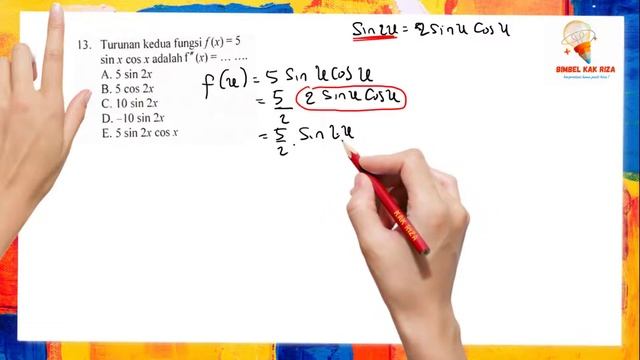 13. Turunan kedua fungsi f(x) = 5
sin x cos x adalah f"(x) = ... ....
A. 5 sin 2x
B. 5 cos 2x
C. 10 sin 2x
D. –10 sin 2x
E. 5 sin 2x cos x
Sin 2x = 2 Sin x Cos x
f(x) = 5 Sin x Cos x
= 5/2 2 Sin x Cos x
= 5/2 . Sin 2x
BIMBEL KAK RIZA
KAK RIZA